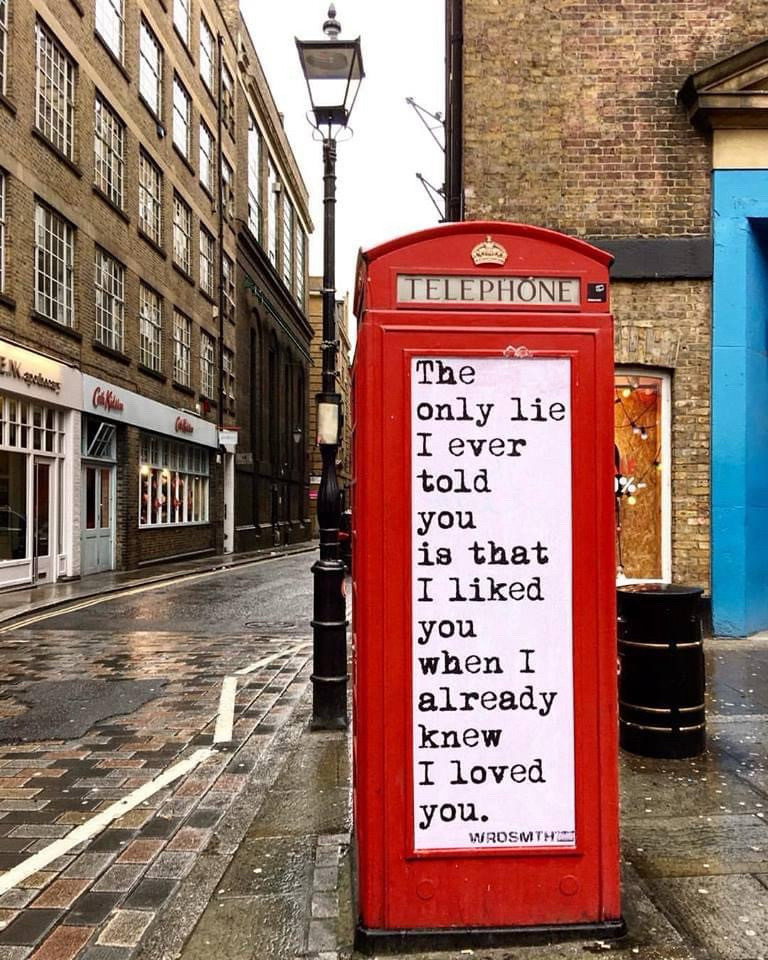 TELEPHONE
The
only lie
I ever
told
you
is that
I liked
you
when I
already
knew
I loved
you.
WRDSMTH
Cath Kidston
Cath Kidston